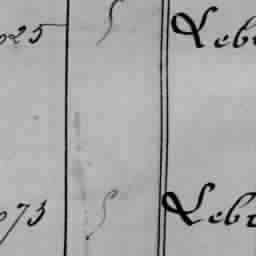 025 S Leb
073 S Leb